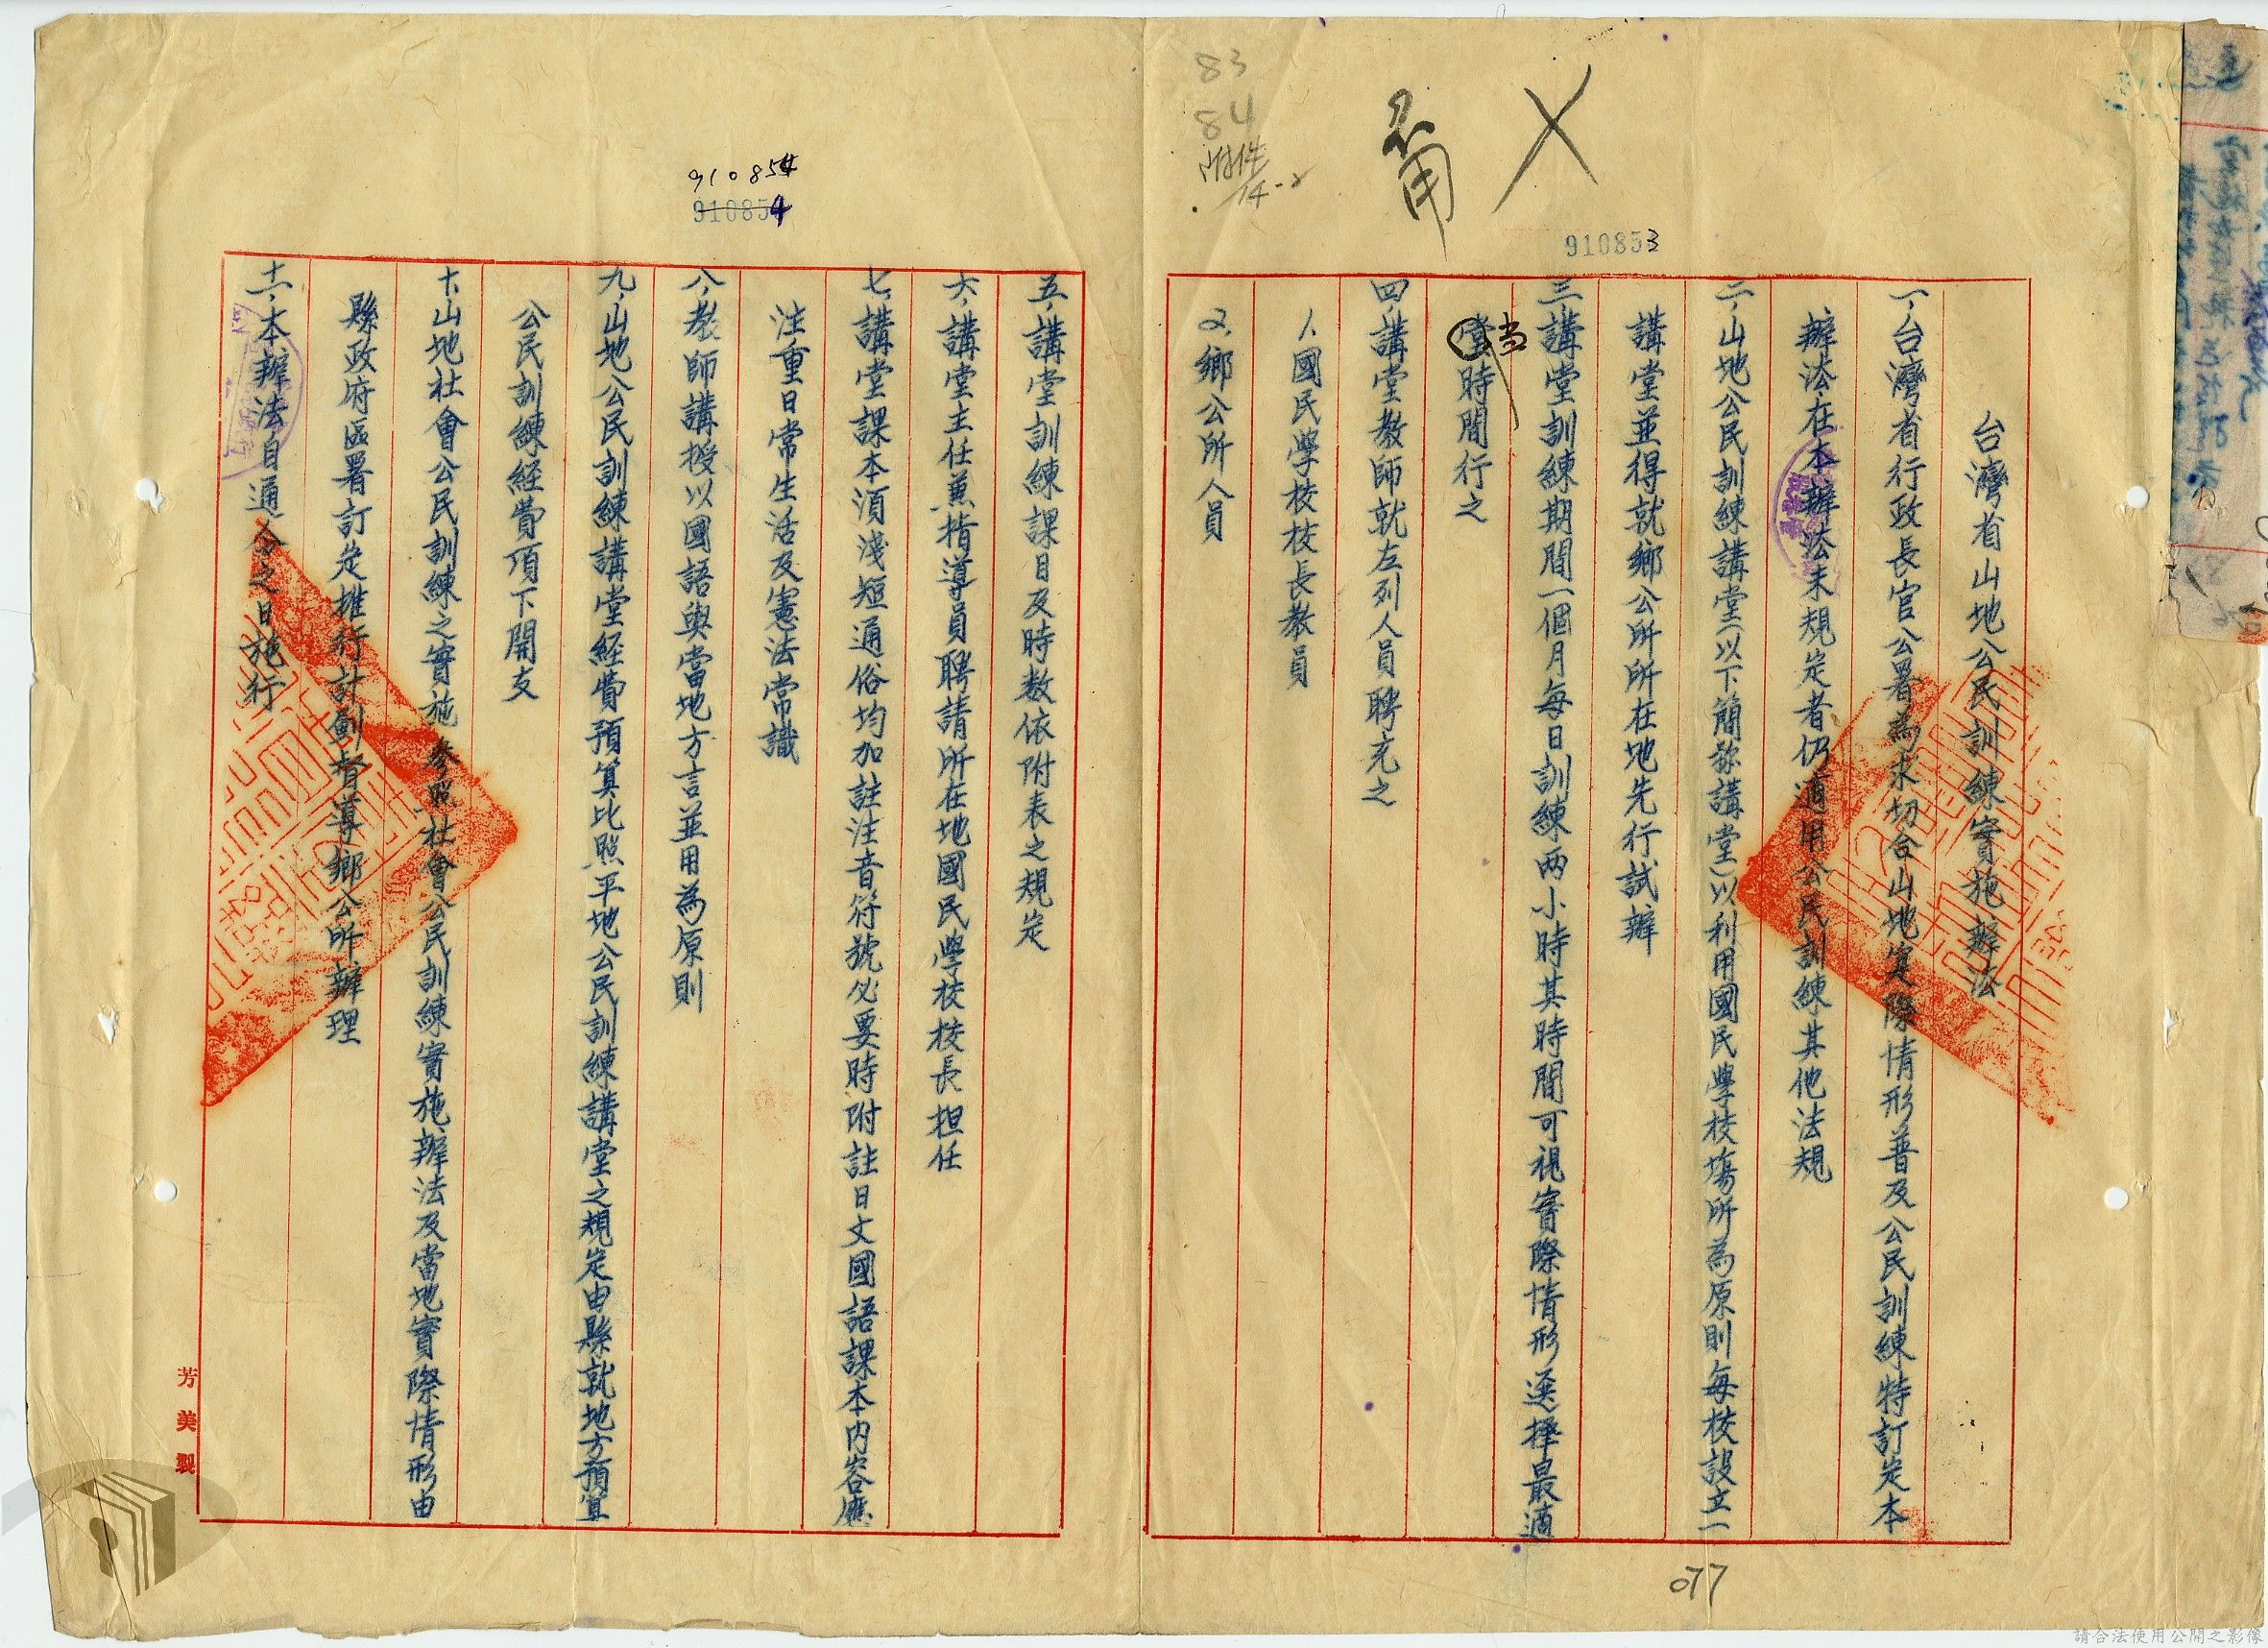 83
84
附件
14-2
910853
台灣省山地公民訓練實施辦法
一、台灣省行政長官公署為求切合山地實際情形普及公民訓練特訂定本
辦法在本辦法未規定者仍適用公民訓練其他法規
二、山地公民訓練講堂(以下簡称講堂)以利用國民學校塲所為原則每校設立一
講堂並得就鄉公所所在地先行試辦
三、講堂訓練期間一個月每日訓練两小時其時間可視實際情形選擇最適
當時間行之
四、講堂教師就左列人員聘充之
1.國民學校校長教員
2.鄉公所人員
077
910854
910854
五、講堂訓練課目及時数依附表之規定
六、講堂主任兼指導員聘請所在地國民學校校長担任
七、講堂課本須淺短通俗均加註注音符號必要時附註日文國語課本內容應
注重日常生活及憲法常識
八、教師講授以國語與當地方言並用為原則
九、山地公民訓練講堂経費預算比照平地公民訓練講堂之規定由縣就地方預算
公民訓練経費項下開支
十、山地社會公民訓練之實施參照社會公民訓練實施辦法及當地實際情形由
縣政府區署訂定推行計劃督導鄉公所辦理
十一、本辦法自通令之日施行
芳美製
請合法使用公開之影像